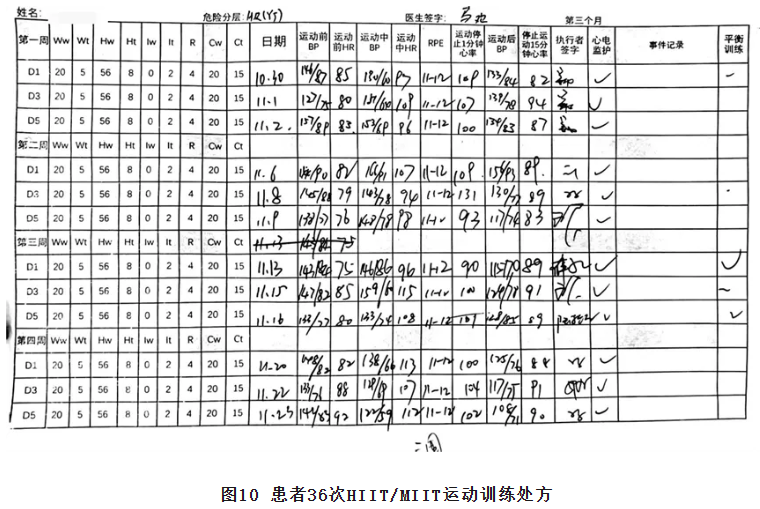 姓名: 危险分层: HR(YJ) 医生签字: 第三个月
第一周 Ww Wt Hw Ht Iw It R Cw Ct 日期 运动前BP 运动前HR 运动中BP 运动中HR RPE 运动停止1分钟心率 运动后BP 停止运动15分钟心率 执行者签字 心电监护 事件记录 平衡训练
D1 20 5 56 8 0 2 4 20 15 10.30 85 97 11-12 109 133/84 82 ✓ –
D3 20 5 56 8 0 2 4 20 15 11.1 80 109 11-12 107 139/78 94 ✓
D5 20 5 56 8 0 2 4 20 15 11.2. 157/89 83 153/69 96 11-12 100 134/83 87 ✓
第二周 Ww Wt Hw Ht Iw It R Cw Ct
D1 20 5 56 8 0 2 4 20 15 11.6 82 107 11-12 109. 89. ✓
D3 20 5 56 8 0 2 4 20 15 11.8 79 143/78 94 11-12 131 130/77 89 ✓
D5 20 5 56 8 0 2 4 20 15 11.9 76 98 93 117/74 83 ✓
第三周 Ww Wt Hw Ht Iw It R Cw Ct 11.13 75
D1 20 5 56 8 0 2 4 20 15 11.13 75 146/86 96 11-12 90 115/70 89 ✓ ✓
D3 20 5 56 8 0 2 4 20 15 11.15 147/82 85 159/60 115 100 129/78 91 ✓ –
D5 20 5 56 8 0 2 4 20 15 11.16 133/77 80 133/74 108 11-12 109 128/85 89 ✓ ✓
第四周 Ww Wt Hw Ht Iw It R Cw Ct
D1 20 5 56 8 0 2 4 20 15 11-20 148/82 82 138/66 113 11-12 100 125/76 84 ✓
D3 20 5 56 8 0 2 4 20 15 11.22 88 129/69 107 11-12 104 117/75 91 ✓
D5 20 5 56 8 0 2 4 20 15 11.23 92 122/59 112 11-12 102 108/71 90 ✓
二周
图10 患者36次HIIT/MIIT运动训练处方